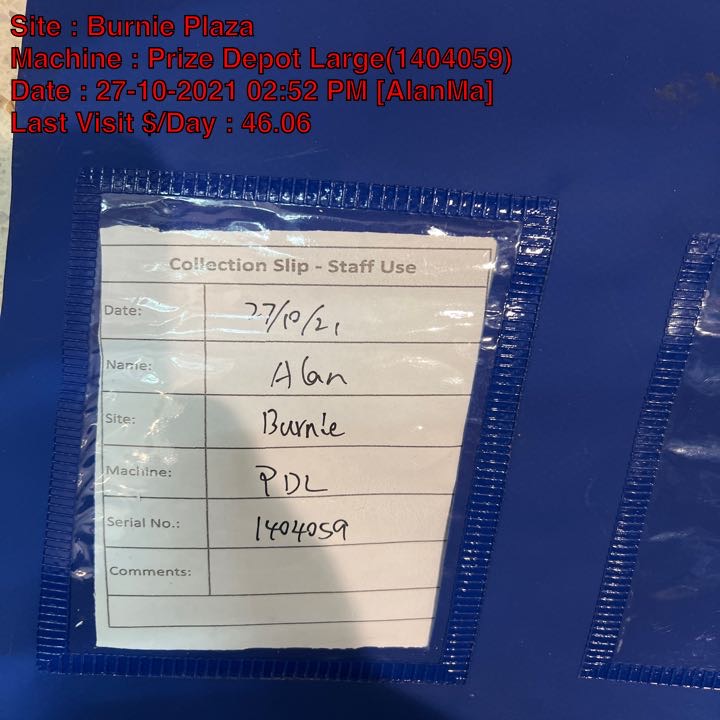 Site : Burnie Plaza
Machine : Prize Depot Large(1404059)
Date : 27-10-2021 02:52 PM [AlanMa]
Last Visit $/Day : 46.06
Collection Slip - Staff Use
Date: 27/10/21
Name: Alan
Site: Burnie
Machine: PDL
Serial No.: 1404059
Comments: